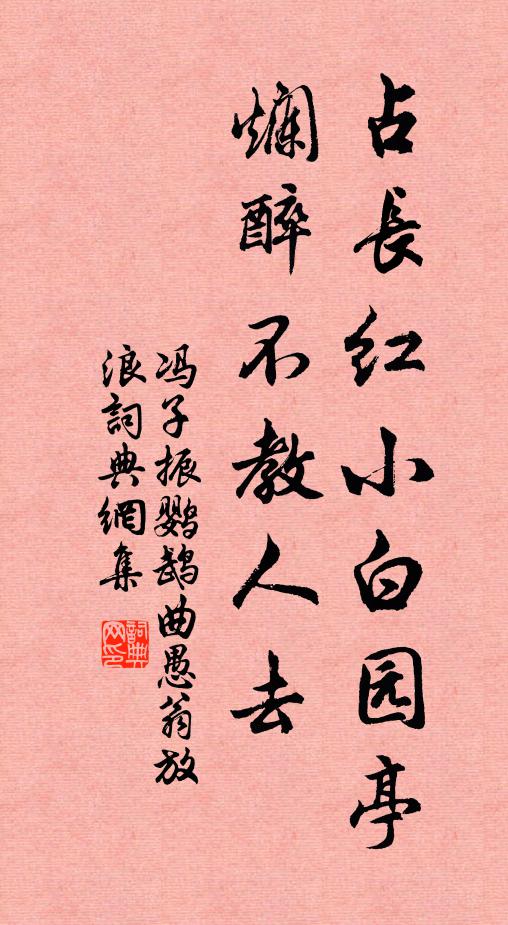 占長红小白园亭
爛醉不教人去
冯子振鹦鹉曲愚翁放
浪詞典網集
詞典网印